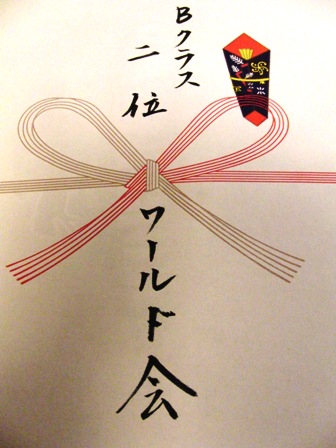 Bクラス
二位
ワールド会